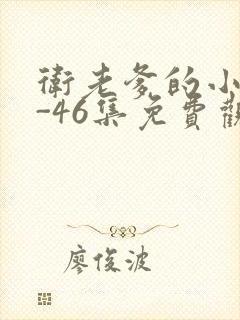 衛老爹的小
-46集免費觀
廖俊波